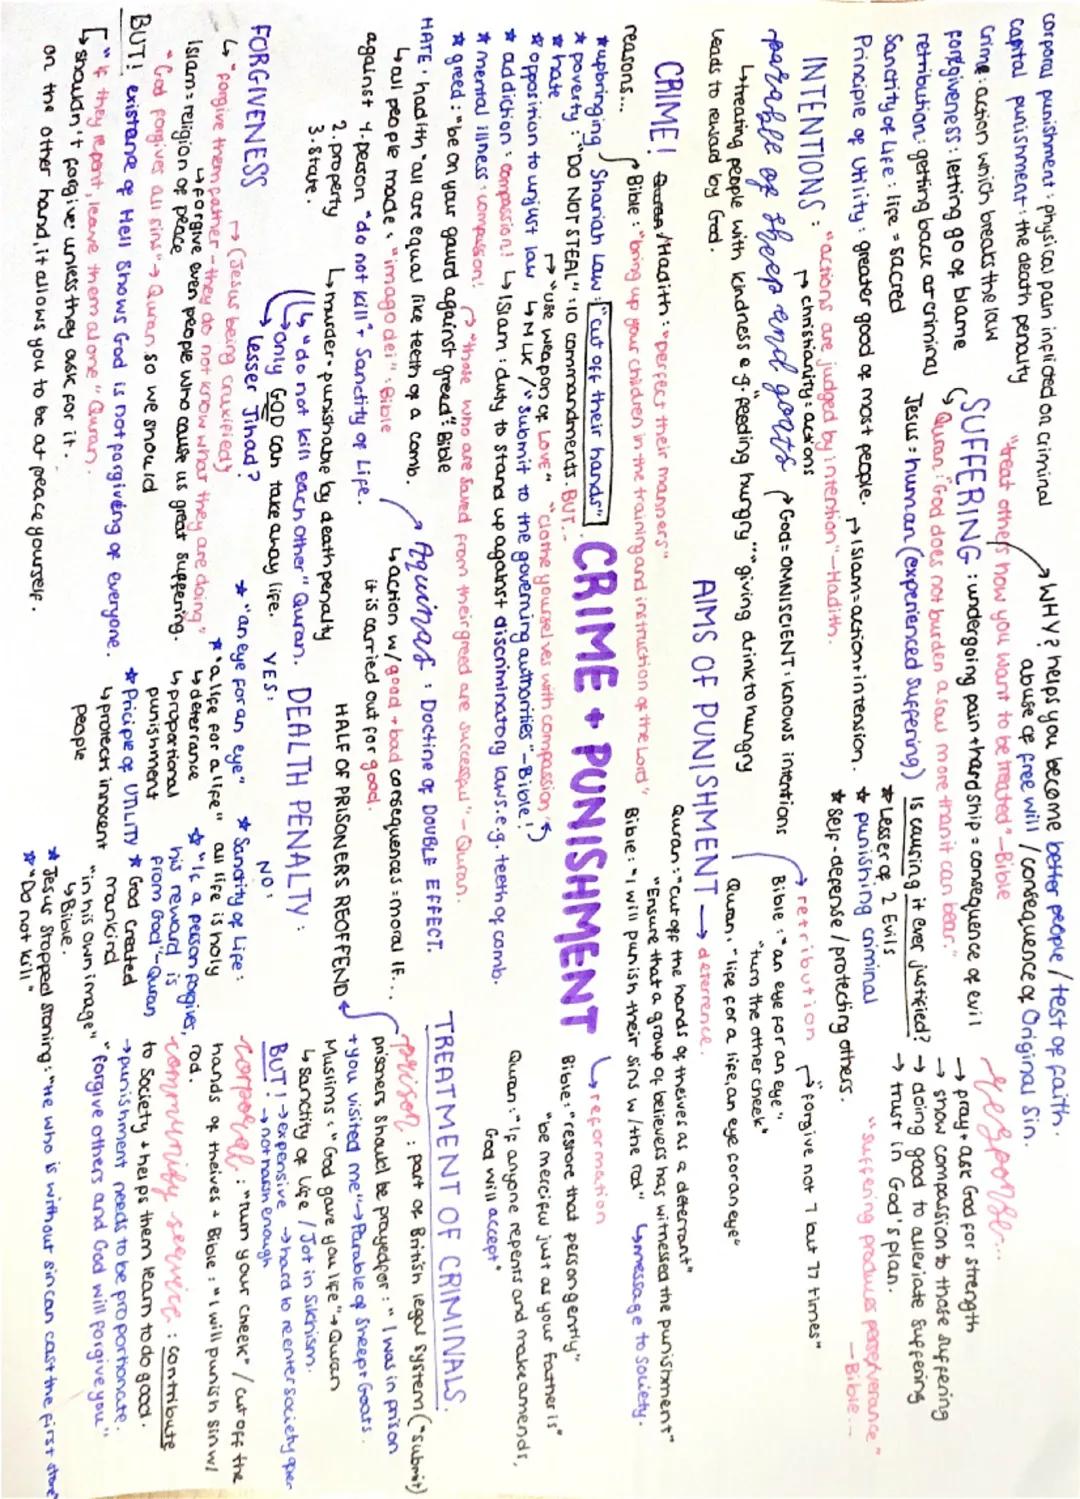 corporal punishment: physical pain inflicted on criminal
capital punishment: the death penalty
Crime: action which breaks the law
Forgiveness: letting go of blame
retribution: getting back at criminal
Sanctity of Life: life = sacred
Principle of Utility: greater good of most people.
INTENTIONS: "actions are judged by intention" - Hadith.
→ christianity: actions
→ Islam = action + intension.
parable of sheep and goats
→ God = OMNISCIENT: knows intentions
↳ treating people with kindness e.g. "feeding hungry" "giving drink to hungry
leads to reward by God.
→ WHY? helps you become better people / test of faith.
abuse of free will / consequence of Original Sin.
"treat others how you want to be treated" - Bible
SUFFERING: undergoing pain + hardship = consequence of evil
↳ Quran: "God does not burden a soul more than it can bear."
Jesus = human (experienced suffering)
response...
→ pray + ask God for strength
→ show compassion to those suffering
→ doing good to alleviate suffering
→ trust in God's plan.
"suffering produces perseverance"
- Bible...
Is causing it ever justified?
* Lesser of 2 Evils
* punishing criminal
* Self-defense / protecting others.
CRIME! /Hadith: "perfect their manners"
reasons...
Bible: "bring up your children in the training and instruction of the Lord"
* upbringing
Shariah Law: "cut off their hands"
* poverty: "DO NOT STEAL": 10 commandments. BUT...
* hate
→ "use weapon of Love"
"clothe yourselves with compassion"
* opposition to unjust law
↳ MLK / "submit to the governing authorities" - Bible!
* addiction: compassion!
↳ Islam: duty to stand up against discriminatory laws. e.g. teeth of comb.
* mental illness: compassion!
→ "those who are saved from their greed are successful" - Quran.
* greed: "be on your gaurd against greed": Bible
HATE: hadith "all are equal like teeth of a comb.
↳ all people made: "imago dei": Bible
against 1. person "do not kill" + Sanctity of Life.
2. property
3. state.
↳ murder - punishable by death penalty
Aquinas: Doctine of DOUBLE EFFECT.
↳ action w/ good + bad consequences = moral IF...
it is carried out for good.
CRIME + PUNISHMENT
AIMS OF PUNISHMENT → deterrence.
Quran: "cut off the hands of theives as a deterrant"
"Ensure that a group of believers has witnessed the punishment"
Bible: "I will punish their sins w/ the rod"
↳ message to society.
→ retribution
Bible: "an eye for an eye"
"turn the other cheek"
→ "forgive not 7 but 77 times"
Quran: "life for a life, an eye for an eye"
↳ reformation
Bible: "restore that person gently"
"be merciful just as your father is"
Quran: "If anyone repents and make amends,
God will accept"
FORGIVENESS
→ (Jesus being crucified)
↳ "forgive them father - they do not know what they are doing"
↳ forgive even people who cause us great suffering.
Islam = religion of peace
"God forgives all sins" → Quran so we should
BUT! existane of Hell shows God is not forgiving of everyone.
"If they repent, leave them alone" Quran.
↳ shouldn't forgive unless they ask for it.
on the other hand, it allows you to be at peace yourself.
↳ "do not kill each other" Quran.
→ only GOD can take away life.
→ lesser Jihad?
DEALTH PENALTY:
YES:
* "an eye for an eye"
* "a life for a life"
↳ deterrance
↳ proportional
punishment
* Priciple of UTILITY
↳ protects innocent
people
NO:
* Sanctity of Life:
all life is holy
* "If a person forgives,
his reward is
from God" - Quran
* God created
mankind
"in his own image"
↳ Bible.
* Jesus stopped stoning: "He who is without sin can cast the first stone"
* "Do not kill"
TREATMENT OF CRIMINALS.
HALF OF PRISONERS REOFFEND
prison: part of British legal system ("submit)
prisoners should be prayed for: "I was in prison
+ you visited me" → Parable of Sheep + Goats.
Muslims: "God gave you life" → Quran
↳ Sanctity of Life / Jot in Sikhism.
BUT! → expensive → hard to reenter society after
→ not harsh enough
corporal: "turn your cheek" / cut off the
hands of theives + Bible: "I will punish sin w/
rod.
community service: contribute
to Society + helps them learn to do good.
→ punishment needs to be proportionate.
"forgive others and God will forgive you"